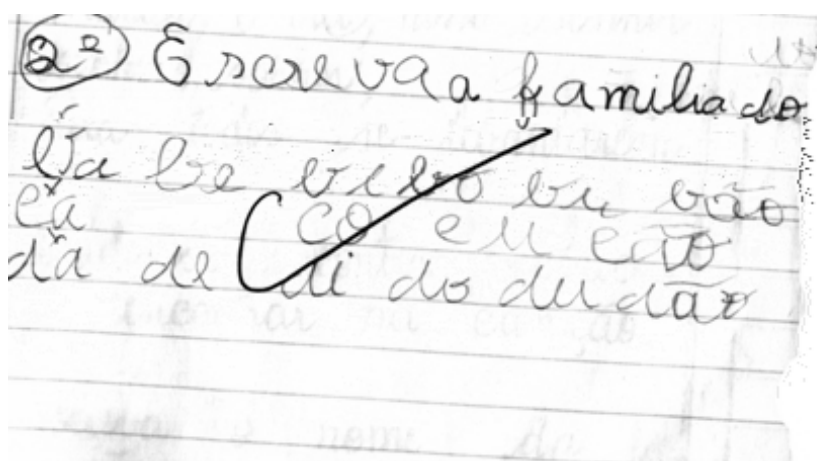 2º Escreva a familia do
Ba be bi bo bu bão
ca co cu cão
da de di do du dão